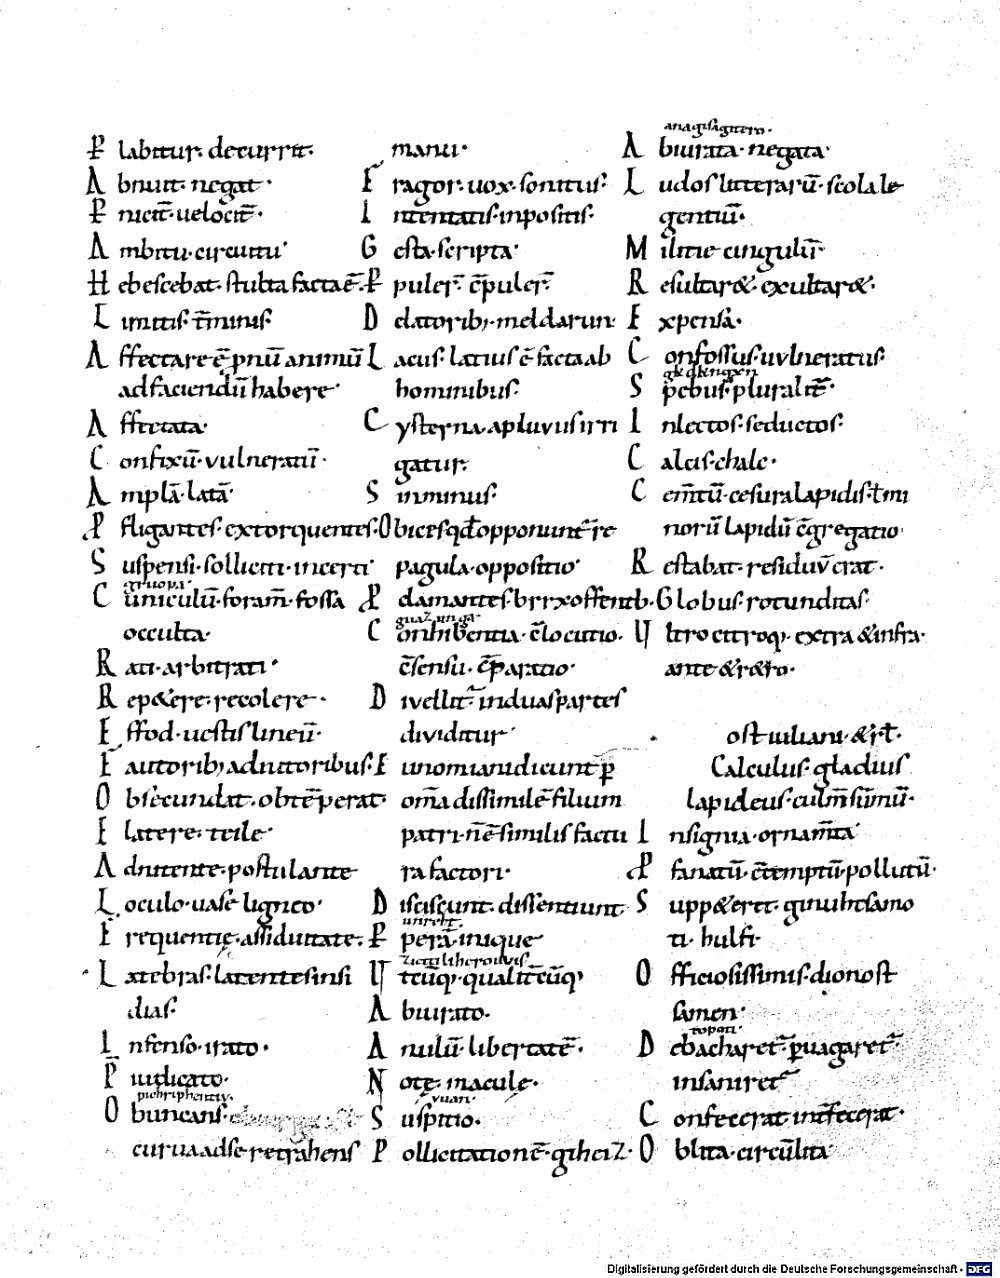 P labitur· decurrit·
A bnuit· negat·
P nicit̄· uelocit̄·
A mbitu· circuitu·
H ebescebat· stulta facta ē·
L imitis· t̄minis·
A ffectare ē· pnū animū
ad faciendū habere·
A ffectata·
C onfixū· vulneratū·
A mplā· latā·
P fligantes· extorquentes·
S uspensi· solliciti· incerti·
gruopa·
C uniculū· foram̄· fossa
occulta·
R ati· arbitrati·
R ep&ere· recolere·
E ffod· uestis lineū·
F autorib; adiutoribus·
O bsecundat· obtēperat·
E latere· teile·
A dnitente· postulante
L oculo· uase ligneo·
F requentię· assiduitate·
L atebras· latentes insi
dias·
I nfenso· irato·
P iudicato·
O buncans·
curua adse retrahens
manu·
F ragor· uox· sonitus·
I ntentatis· inpositis·
G esta· scripta·
P puler̄· c̄puler̄·
D elatorib; meldarun·
L acus· latius ē facta ab
hominibus·
C ysterna· a pluvus irri
gatur·
S inminus·
O bices· qd̄ opponunt̄ re
pagula· oppositio·
P damantes· brrxoffentb·
C onhibentia· c̄locutio·
c̄sensu· c̄paratio·
D ivellit̄· in duas partes
dividitur·
E unomiani dicunt p̄
om̄a dissimilē filium
patri· n̄ ē similis factu
ra factori·
D isciscunt· dissentiunt·
unreht·
P perā· inique
U tcūq;· qualit̄cūq;
A biurato·
A nulū· libertatē·
N otę· macule·
S uspitio·
P ollicitationē· giheiz·
A biurata· negata·
L udos litterarū· scola le
gentiū·
M ilitie cingulū·
R esultar&· exultar&·
E xpensā·
C onfossus· uvlneratus·
S pcbus· pluralit̄·
I nlectos· seductos·
C alcis· chalc·
C em̄tū· cesura lapidis· t̄ mi
norū lapidū c̄gregatio·
R estabat· residuv̄ erat·
G lobus· rotunditas·
U ltro citroq;· extra & infra·
ante & r&ro·
ost iuliani· &r̄t·
Calculus· gladius
lapideus· culm̄ sūmū·
I nsignia· ornam̄ta·
P fanatū· c̄temptū· pollutū·
S upp&eret· ginuhtsamo
ti· hulfi·
O fficiosissimis· dionost
samen·
topoti·
D ebacharet̄· puagaret̄·
insaniret̄
C onfecerat· int̄fecerat·
O blita· circūlita·
Digitalisierung gefördert durch die Deutsche Forschungsgemeinschaft · DFG